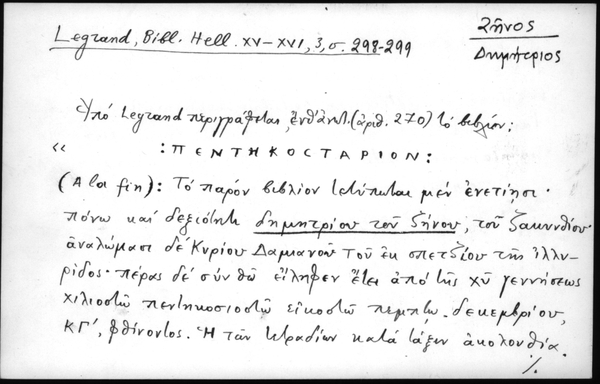 Ζῆνος
Δημήτριος
Legrand, Bibl. Hell. XV–XVI, 3, σ. 298-299
Ὑπό Legrand περιγράφεται, ἐνθ' ἀνωτ. (ἀριθ. 270) τό βιβλίον:
«
:ΠΕΝΤΗΚΟΣΤΑΡΙΟΝ:
(A la fin): Τό παρόν βιβλίον τετύπωται μέν ἐνετίησι·
πόνω καί δεξιότητι δημητρίου τοῦ ζήνου, τοῦ ζακυνθίου·
ἀναλώμασι δέ Κυρίου Δαμιανοῦ τοῦ ἐκ σπετζίου τῆς ἰλλυ-
ρίδος· πέρας δέ σύν θῶ εἴληφεν ἔτει ἀπό τῆς χῦ γεννήσεως
χιλιοστῶ πεντηκοσιοστῶ εἰκοστῶ πέμπτω. δεκεμβρίου,
ΚΓ', φθίνοντος. Ἡ τῶν τετραδίων κατά τάξιν ἀκολουθία.
./.